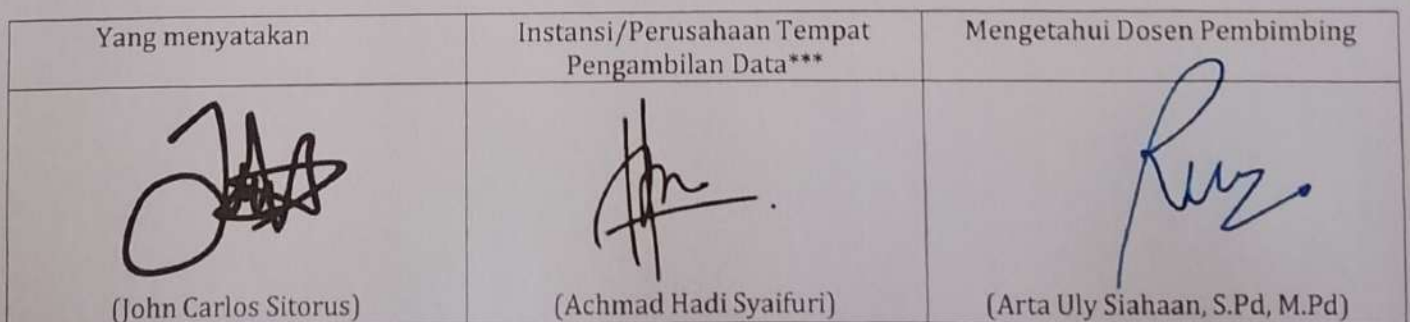 Yang menyatakan
Instansi/Perusahaan Tempat
Pengambilan Data***
Mengetahui Dosen Pembimbing
(John Carlos Sitorus)
(Achmad Hadi Syaifuri)
(Arta Uly Siahaan, S.Pd, M.Pd)